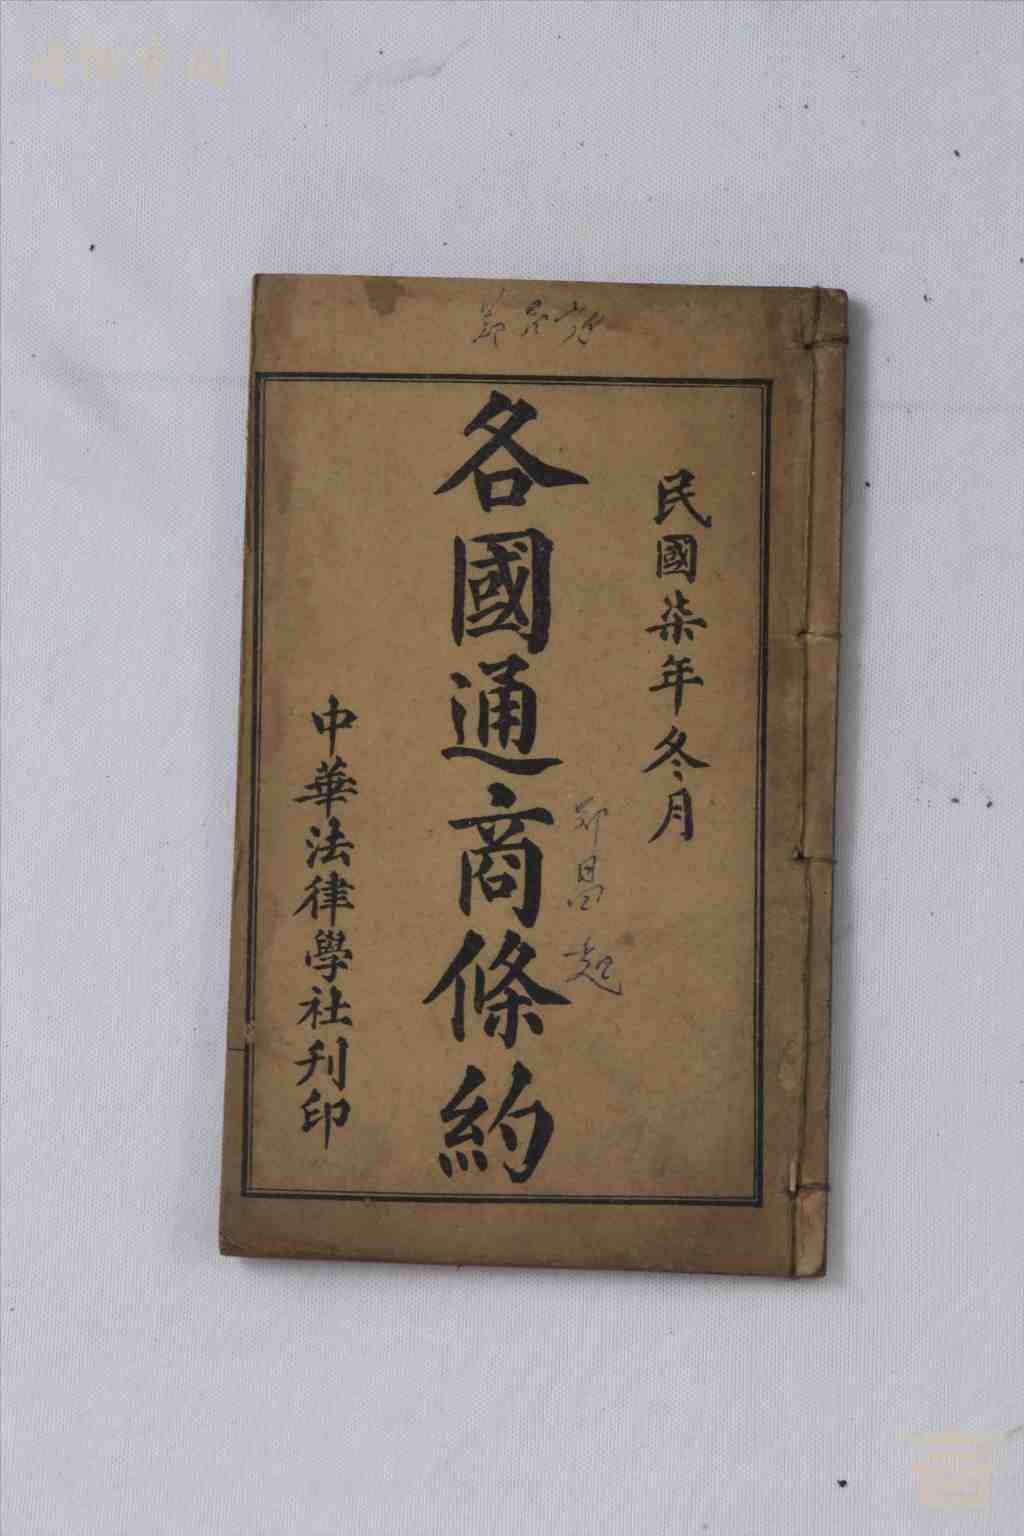 民國柒年冬月
各國通商條約
中華法律學社刊印